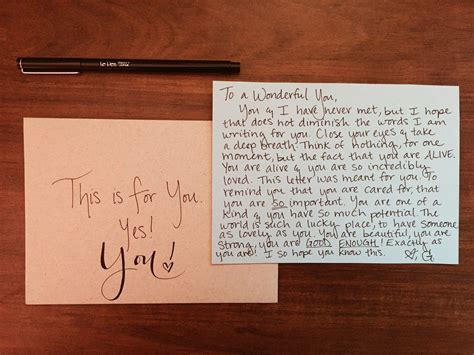 Le Pen
This is for You.
Yes!
You!
To a Wonderful You,
You & I have never met, but I hope
that does not diminish the words I am
writing for you. Close your eyes & take
a deep breath. Think of nothing, for one
moment, but the fact that you are ALIVE.
You are alive & you are so incredibly
loved. This letter was meant for you. To
remind you that you are cared for, that
you are so important. You are one of a
kind & you have so much potential. The
world is such a lucky place, to have someone
as lovely as you. You are beautiful, you are
strong, you are GOOD ENOUGH! Exactly as
you are! I so hope you know this.